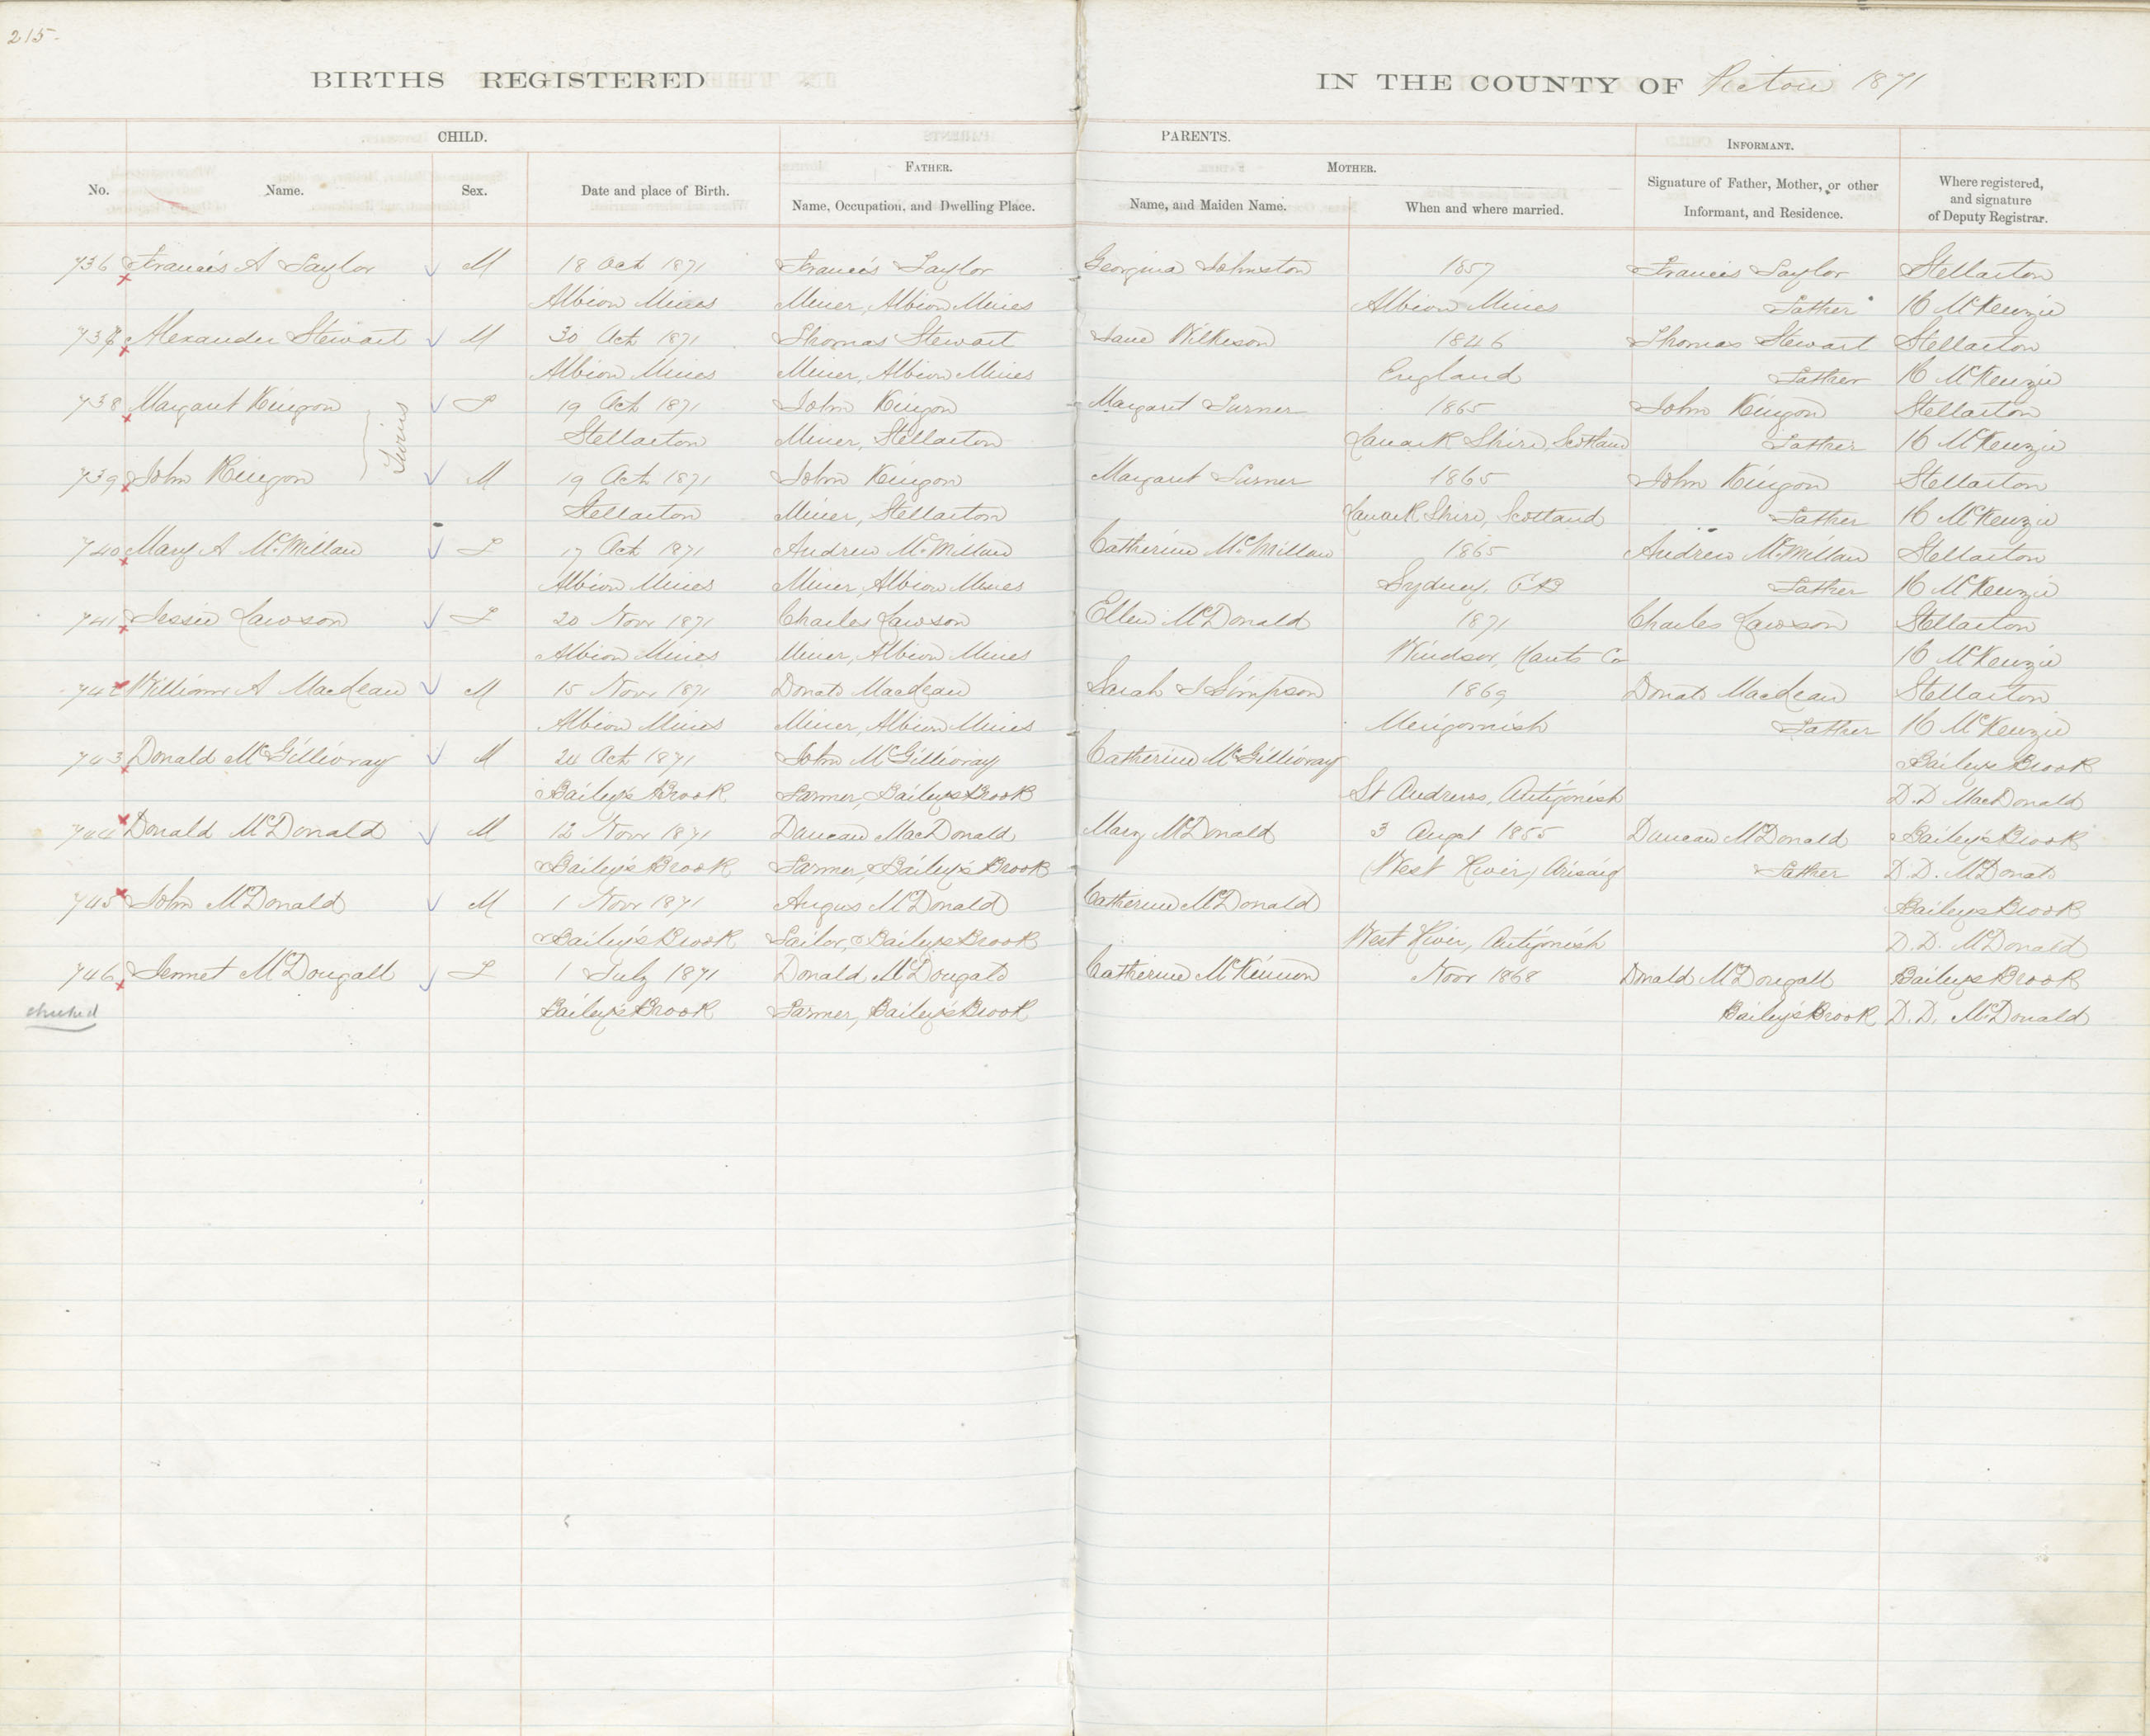 215.
BIRTHS REGISTERED IN THE COUNTY OF Pictou 1871
CHILD. PARENTS. INFORMANT.
FATHER. MOTHER.
No. Name. Sex. Date and place of Birth. Name, Occupation, and Dwelling Place. Name, and Maiden Name. When and where married. Signature of Father, Mother, or other Informant, and Residence. Where registered, and signature of Deputy Registrar.
736 Francis A Taylor M 18 Oct 1871 Francis Taylor Georgina Johnston 1857 Francis Taylor Stellarton
Albion Mines Miner, Albion Mines Albion Mines Father H McKenzie
737 Alexander Stewart M 30 Oct 1871 Thomas Stewart Jane Wilkison 1846 Thomas Stewart Stellarton
Albion Mines Miner, Albion Mines England Father H McKenzie
738 Margaret Kingon F 19 Oct 1871 John Kingon Margaret Turner 1865 John Kingon Stellarton
Twins
Stellarton Miner, Stellarton Lanark Shire, Scotland Father H McKenzie
739 John Kingon M 19 Oct 1871 John Kingon Margaret Turner 1865 John Kingon Stellarton
Stellarton Miner, Stellarton Lanark Shire, Scotland Father H McKenzie
740 Mary A McMillan F 17 Oct 1871 Andrew McMillan Catherine McMillan 1865 Andrew McMillan Stellarton
Albion Mines Miner, Albion Mines Sydney, C.B Father H McKenzie
741 Jessie Lawson F 20 Novr 1871 Charles Lawson Ellen McDonald 1871 Charles Lawson Stellarton
Albion Mines Miner, Albion Mines Windsor, Hants Co H McKenzie
742 William A MacLean M 15 Novr 1871 Donald MacLean Sarah J Simpson 1869 Donald MacLean Stellarton
Albion Mines Miner, Albion Mines Merigomish Father H McKenzie
743 Donald McGillivray M 24 Oct 1871 John McGillivray Catherine McGillivray Bailey's Brook
Bailey's Brook Farmer, Bailey's Brook St Andrews, Antigonish D.D MacDonald
744 Donald McDonald M 12 Novr 1871 Duncan MacDonald Mary McDonald 3 Augst 1855 Duncan McDonald Bailey's Brook
Bailey's Brook Farmer, Bailey's Brook West River, Arisaig Father D.D. McDonald
745 John McDonald M 1 Novr 1871 Angus McDonald Catherine McDonald Bailey's Brook
Bailey's Brook Sailor, Bailey's Brook West River, Antigonish D.D. McDonald
746 Jennet McDougall F 1 July 1871 Donald McDougald Catherine McKinnon Novr 1868 Donald McDougall Bailey's Brook
checked Bailey's Brook Farmer, Bailey's Brook Bailey's Brook D.D. McDonald